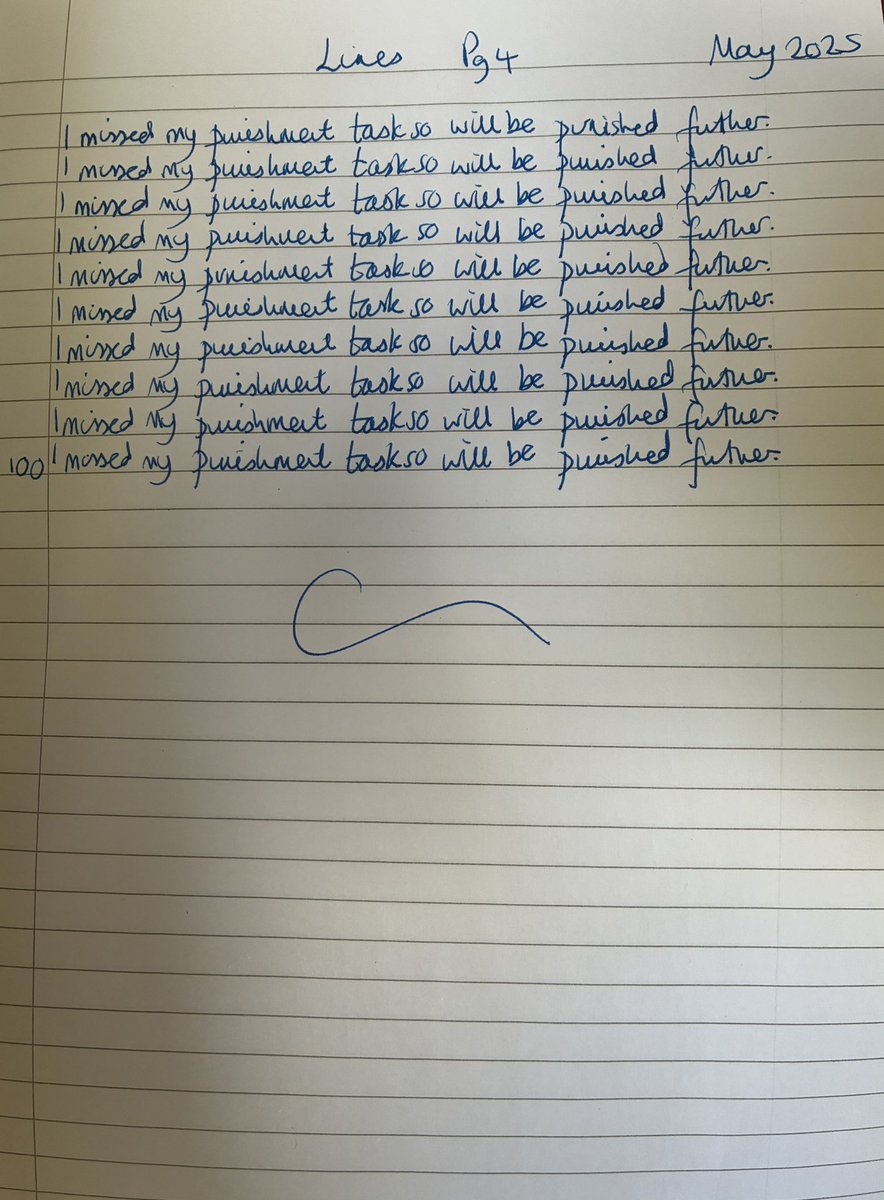 Lines Pg 4 May 2025
I missed my punishment task so will be punished futher.
I missed my punishment task so will be punished futher.
I missed my punishment task so will be punished futher.
I missed my punishment task so will be punished futher.
I missed my punishment task so will be punished futher.
I missed my punishment task so will be punished futher.
I missed my punishment task so will be punished futher.
I missed my punishment task so will be punished futher.
I missed my punishment task so will be punished futher.
100 I missed my punishment task so will be punished futher.